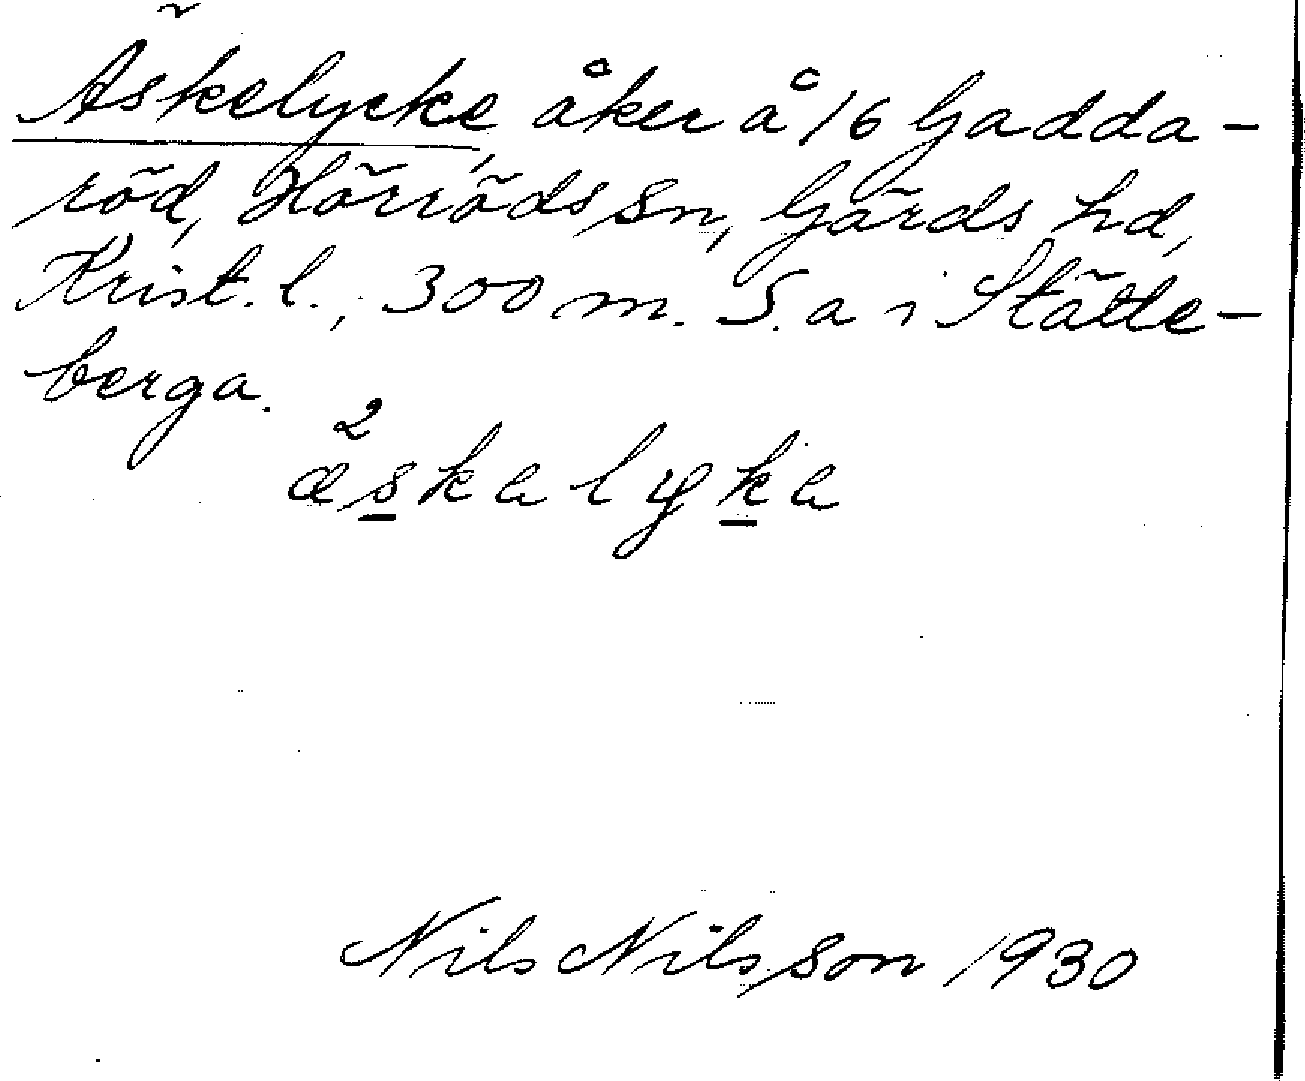 Äskelycke, åker å 16 Gadda-
röd, Hörröds sn, Gärds hd,
Krist. l., 300 m. S. a i Stätte-
berga.
2
äskalyka
Nils Nilsson 1930